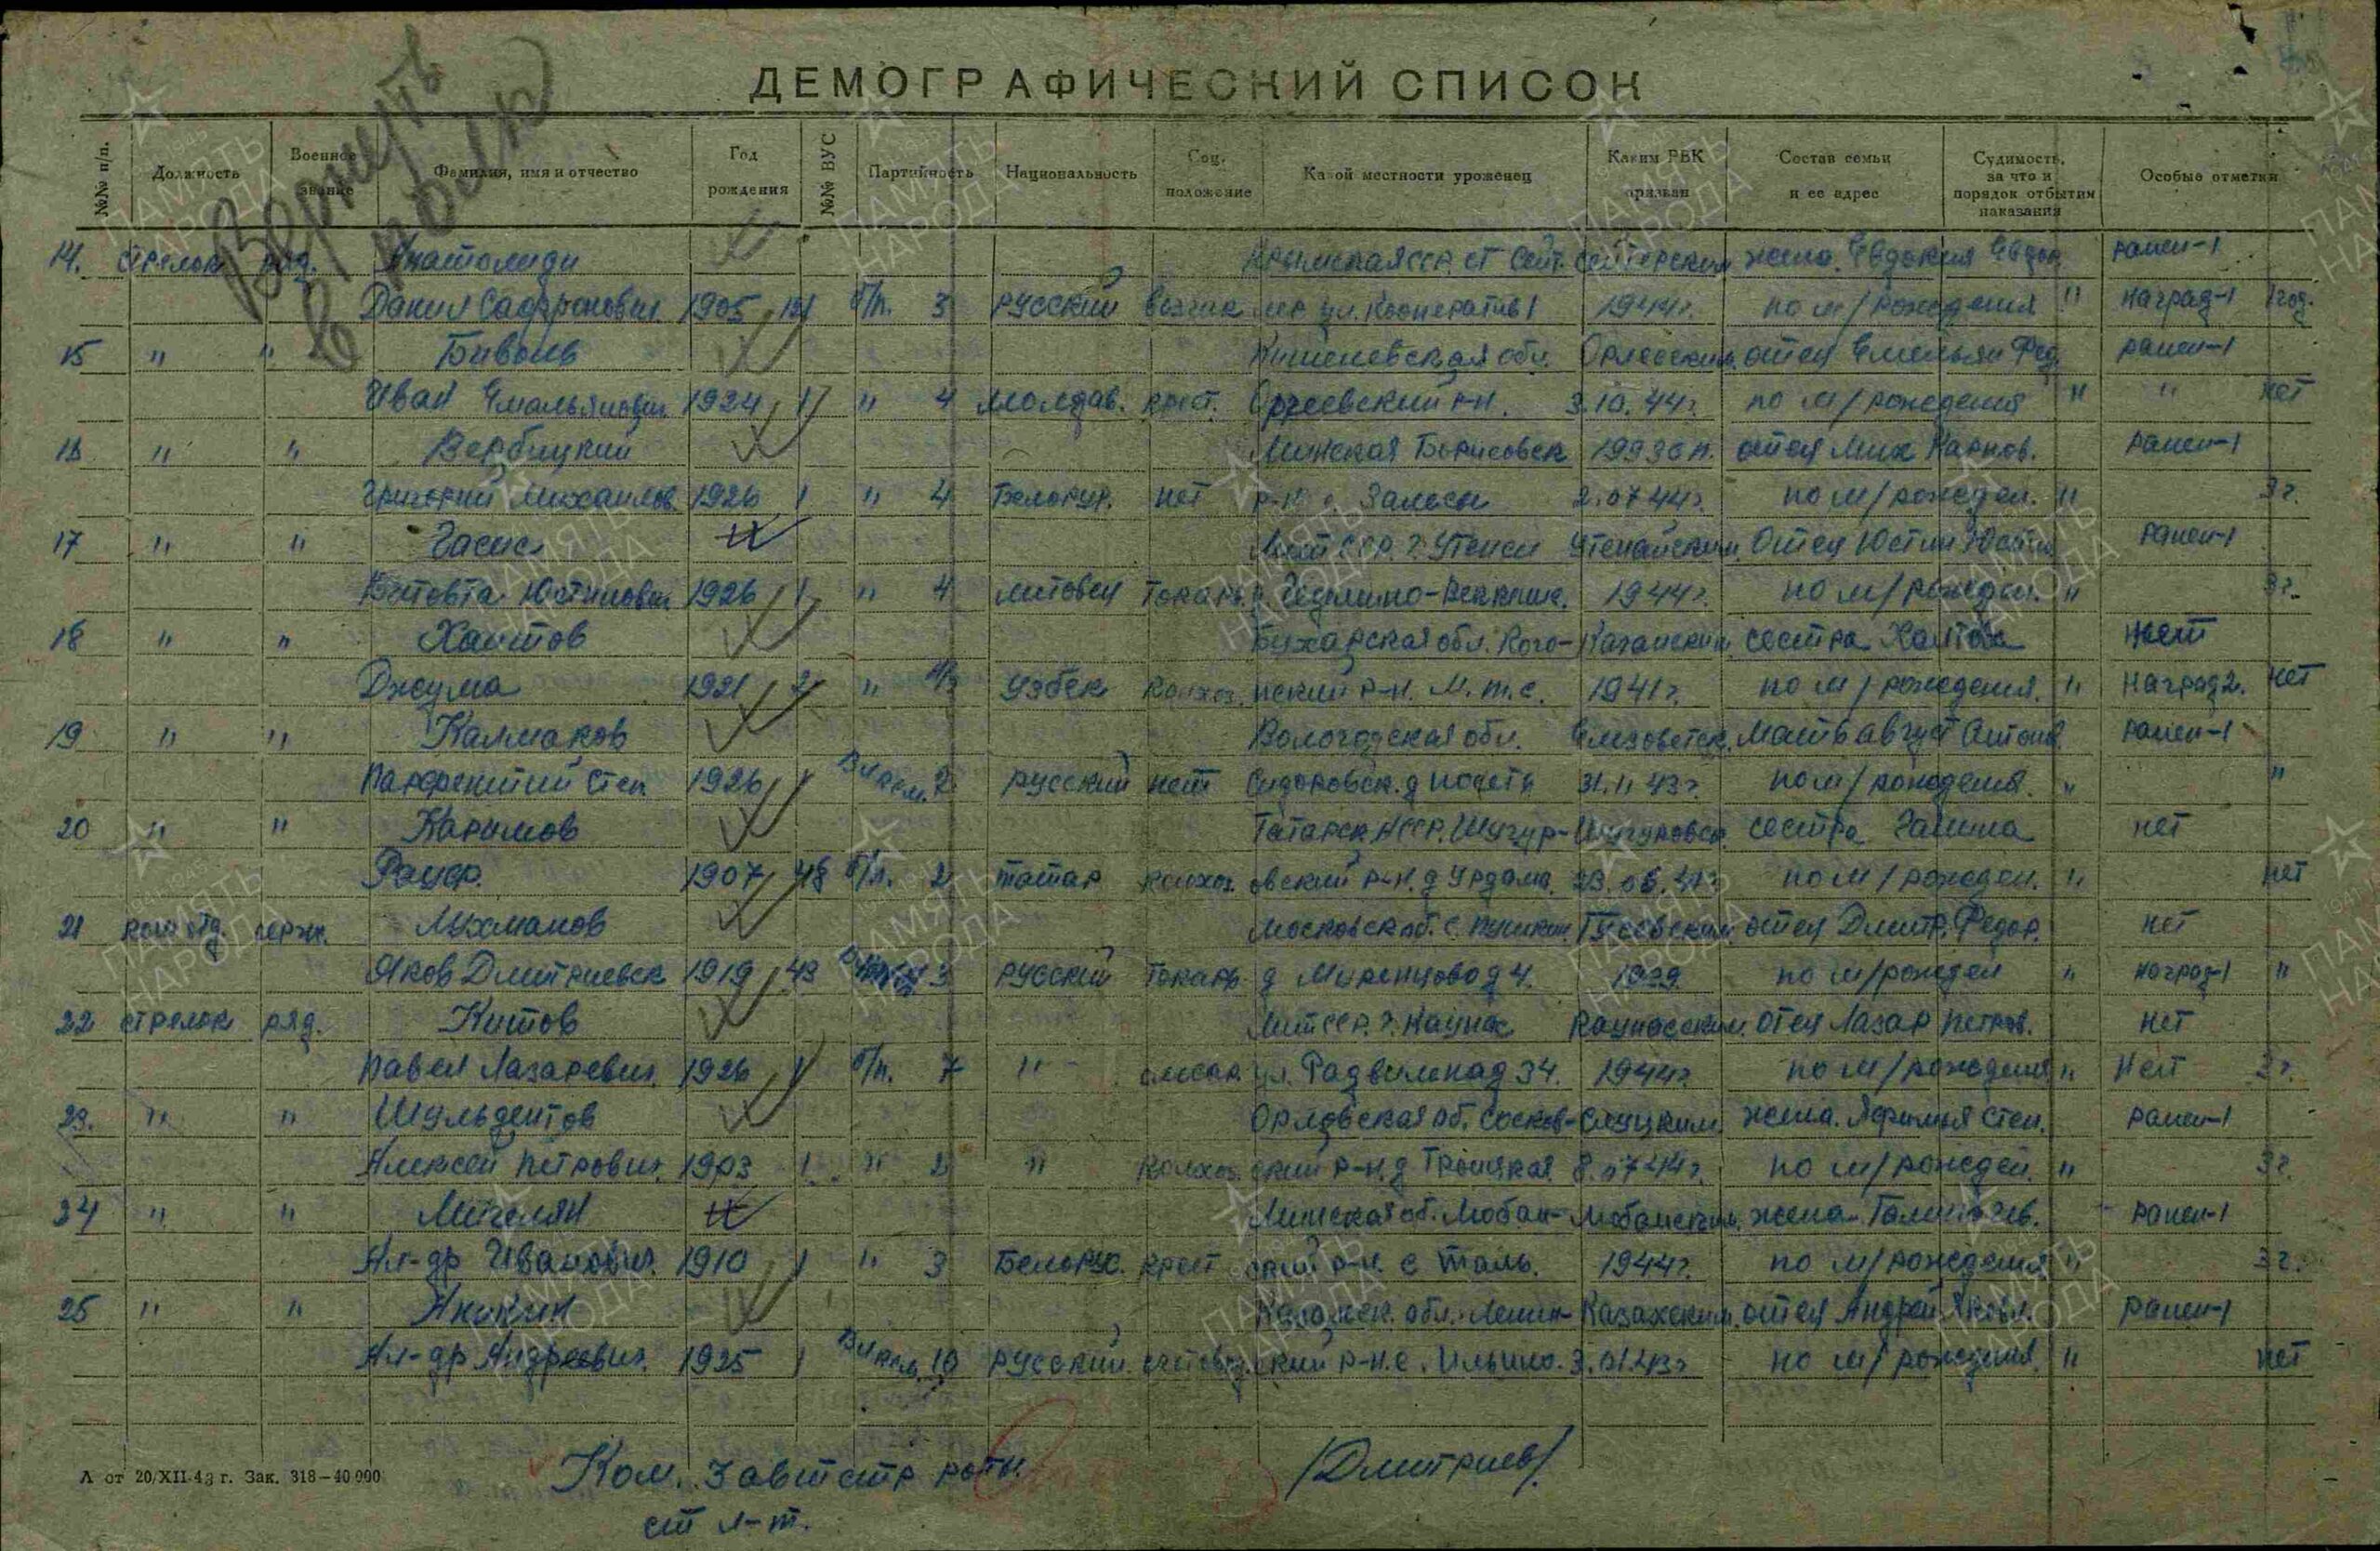 Вернуть
в полк
ДЕМОГРАФИЧЕСКИЙ СПИСОК
№№ п/п. Должность Военное звание Фамилия, имя и отчество Год рождения №№ ВУС Партийность Национальность Соц. положение Какой местности уроженец Каким РВК призван Состав семьи и ее адрес Судимость, за что и порядок отбытия наказания Особые отметки
14. стрелок ряд. Анатолиди Крымская ССР ст. Сейт. Сейтлерским жена Евдокия Евдок. ранен-1
Данил Сафронович 1905 121 б/п. 3 русский возчик ул. Кооператив 1 1944г. по м/рождения " наград-1 1год.
15 " " Биволь Кишеневская обл. отец Емельян Фед. ранен-1
Иван Емельянович 1924 1 " 4 молдав. крест. Оргеевский р-н. 3.10.44г. по м/рождения " " нет
16 " " Вербицкий Минская Борисовск отец Мих Карпов. ранен-1
Григорий Михайлов. 1926 1 " 4 Белорус. нет р-н Зальсы 2.07.44г. по м/рожден. " 3г.
17 " " Гасис Лит ССР. г. Утенси Утенайским Отец Юстин ранен-1
Юстинович 1926 1 " 4 литовец токарь 1944г. по м/рожден. " 3г.
18 " " Хаитов Бухарская обл. Кого- Каганским сестра Хаитова нет
Джума 1921 2 " узбек колхоз. нский р-н. М.т.с. 1941г. по м/рождения. " наград 2. нет
19 " " Калмаков Вологодская обл. мать Август Антон. ранен-1
Парфентий Степ. 1926 1 2 русский нет Сидоровск. д 31.11 43г. по м/рождения. " "
20 " " Каримов Татарск. АССР. Шугур- Шугуровск. сестра Галина нет
Рауф. 1907 48 б/п. 2 татар колхоз. овский р-н. д Урдала. 23.06.41г по м/рожден. " нет
21 ком отд. серж. Лухманов Московск об. с. Пушкин. отец Дмитр. Федор. нет
Яков Дмитриевск 1919 43 3 русский токарь д Муренцово д 4. 1939 по м/рожден " наград-1 "
22 стрелок ряд. Китов Лит ССР. г. Каунас Каунасским. отец Лазар Петров. нет
Павел Лазаревич. 1926 1 б/п. 7 " слесар. ул. 34. 1944г по м/рождения " Нет 3г.
23. " " Шульдентов Орловская об. Сосков- Слуцким жена. Ефимья Степ. ранен-1
Алексей Петрович. 1903 1 " 2 " колхоз. ский р-н. д Троицкая 8.07.44г. по м/рожден. " 3г.
24 " " Мигелян Минская об. Любан- Любанским. жена Галина ранен-1
Ал-др Иванович. 1910 1 " 3 Белорус. крест ский р-н. с Таль. 1944г. по м/рождения " 3г.
25 " " Аникин обл. Ленин- Казахским. отец Андрей Яковл. ранен-1
Ал-др Андреевич. 1925 1 10 русский. ский р-н. с. Ильино. 3.01.43г по м/рождения. " нет
Л от 20/XII-43 г. Зак. 318—40 000
Ком. 3 авт стр роты.
ст л-т.
/Дмитриев/.